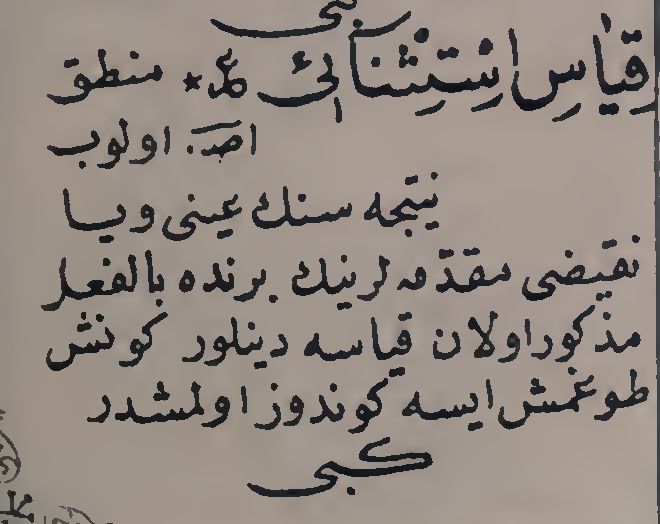 كبى
قِيَاسِ اِسْتِثْنَائِى * منطق
اصـ. اولوب
نتيجه سنك عينى ويا
نقيضى مقدّمه لرينك برنده بالفعل
مذكور اولان قياسه دينلور كونش
طوغمش ايسه كوندوز اولمشدر
كبى